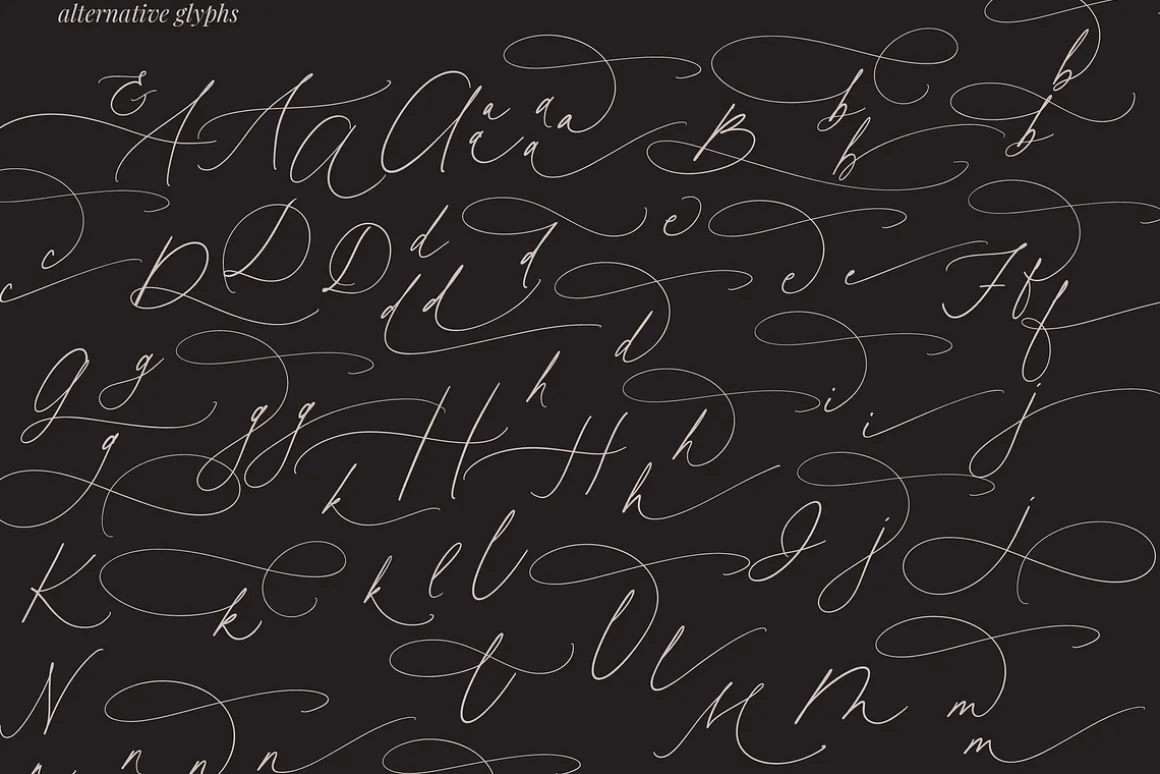 alternative glyphs
& A A a a a a a a a B b b b b
c c D D D d d d d d e e e F f f
g g g g g H H h h h i i j
k K k k l l l l l I j j
N n n n M m m m